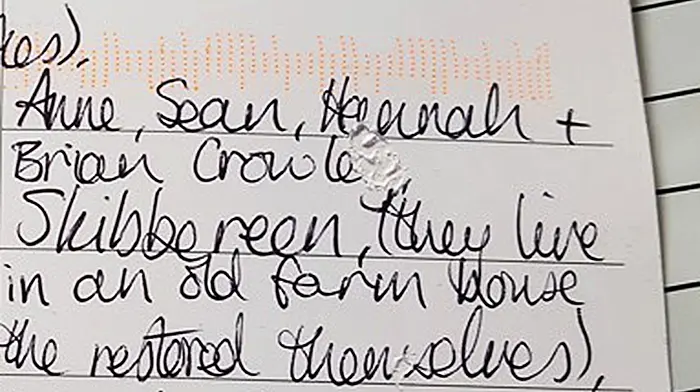 kes).
Anne, Sean, Hannah +
Brian Crowle
Skibbereen, (they live
in an old farm house
the restored themselves),